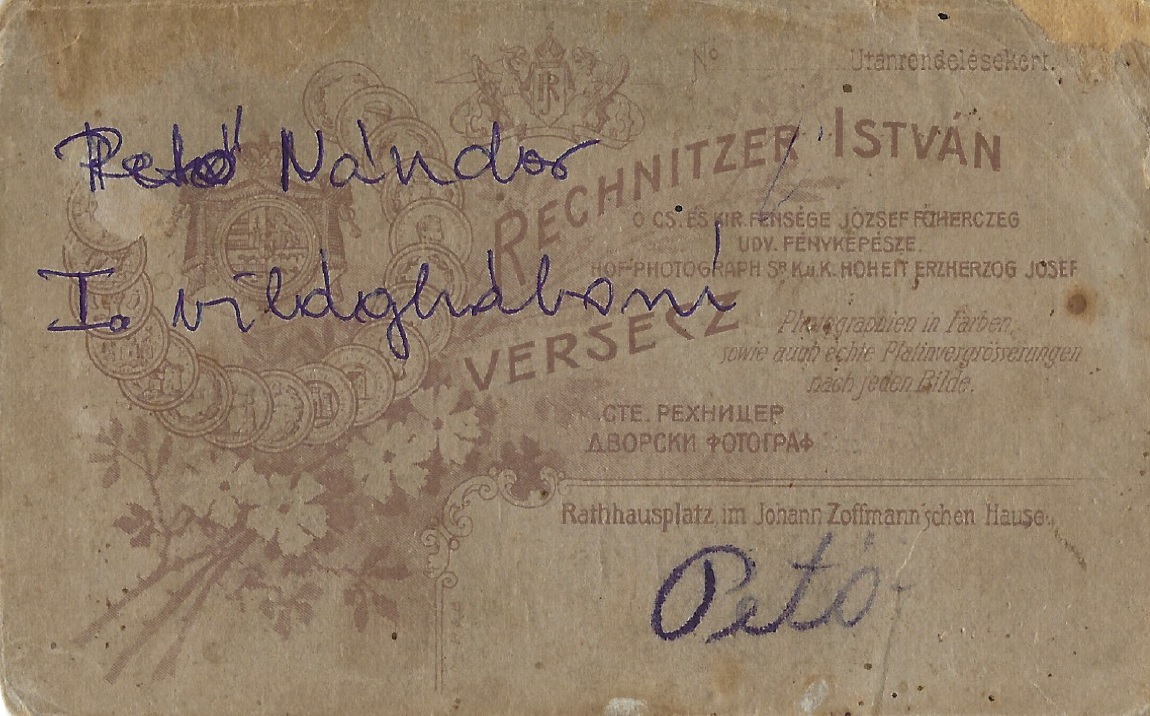 № Utánrendelésekért.
RECHNITZER ISTVÁN
Ő CS. ÉS KIR. FENSÉGE JÓZSEF FŐHERCZEG
UDV. FÉNYKÉPÉSZE.
HOF-PHOTOGRAPH Sr K.u.K. HOHEIT ERZHERZOG JOSEF
VERSECZ
Photographien in Farben,
sowie auch echte Platinvergrösserungen
nach jeden Bilde.
СТЕ. РЕХНИЦЕР
ДВОРСКИ ФОТОГРАФ
Rathhausplatz im Johann Zoffmann'schen Hause.
Pető Nándor
I. világháború
Pető